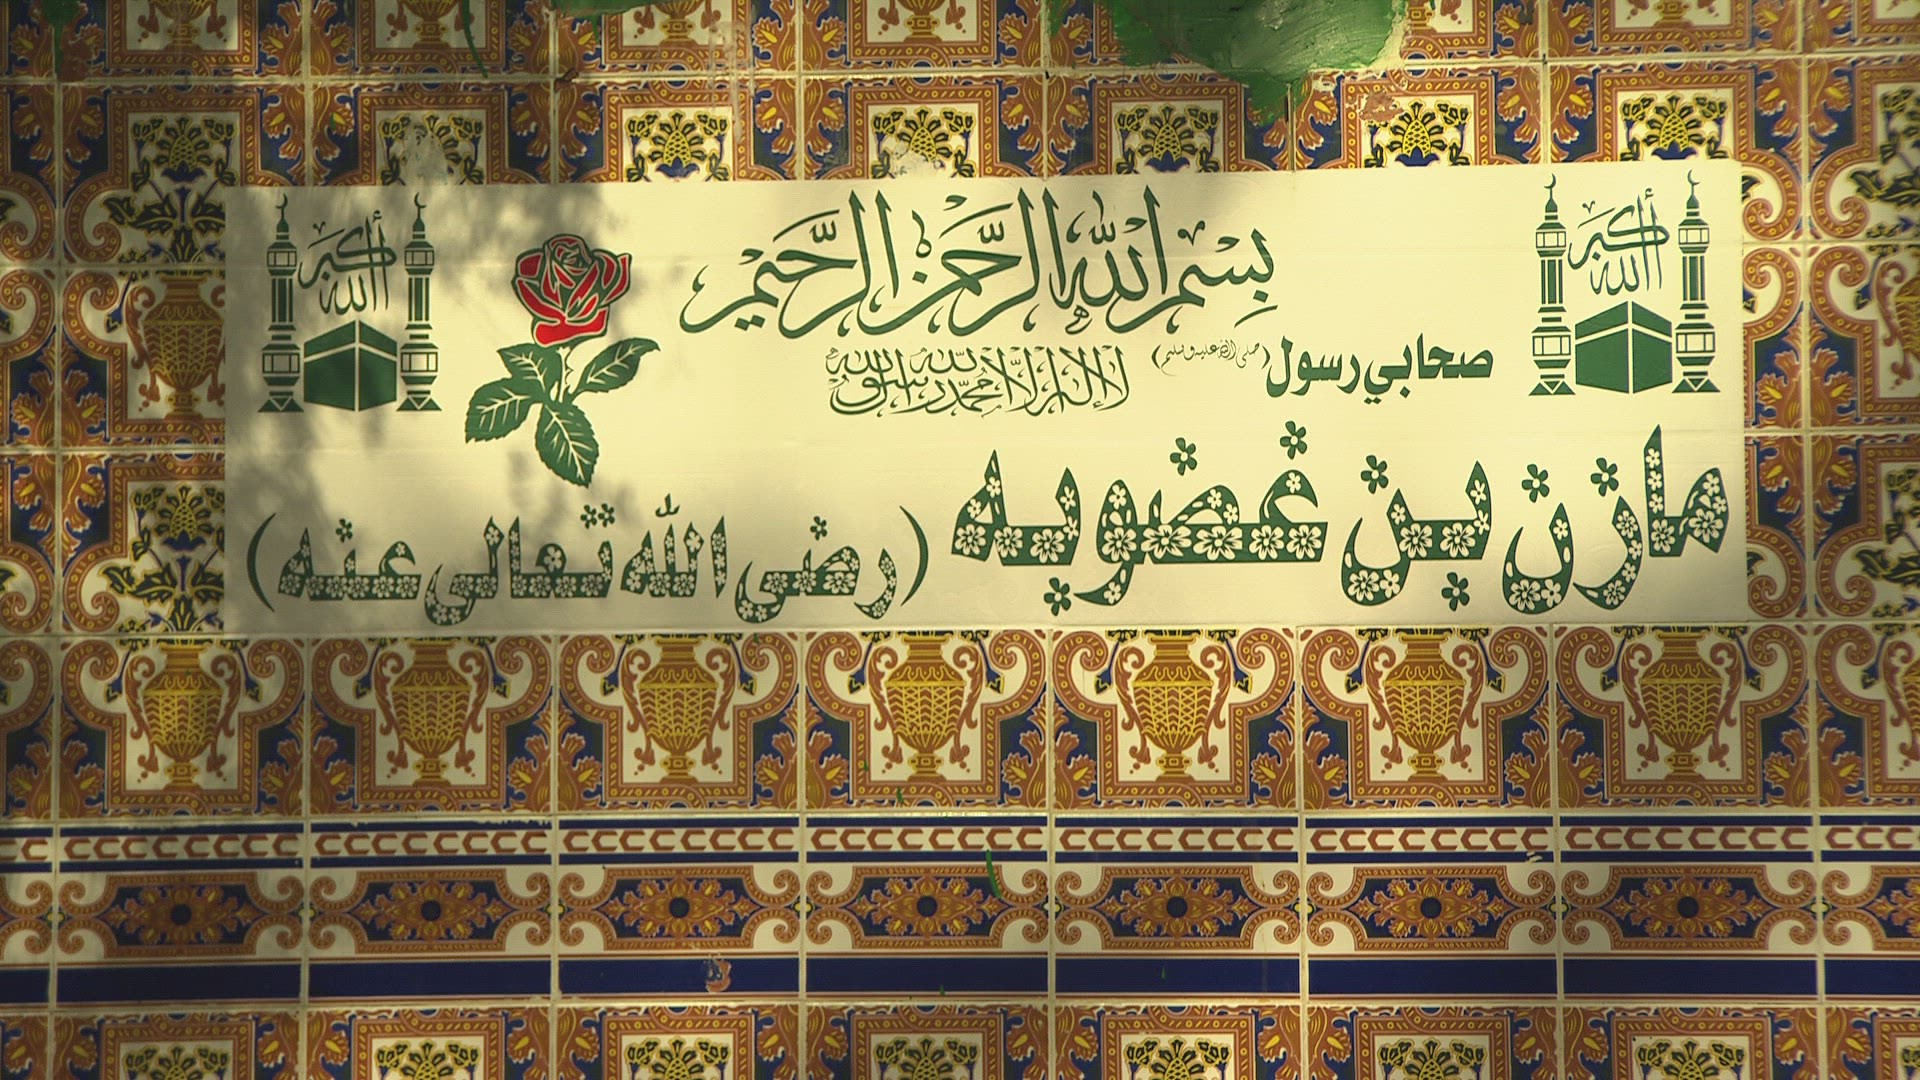 بسم الله الرحمن الرحيم
الله أكبر
الله أكبر
صحابي رسول (صلى الله عليه وسلم)
لا إله إلا الله محمد رسول الله
مازن بن غضوبه (رضى الله تعالى عنه)